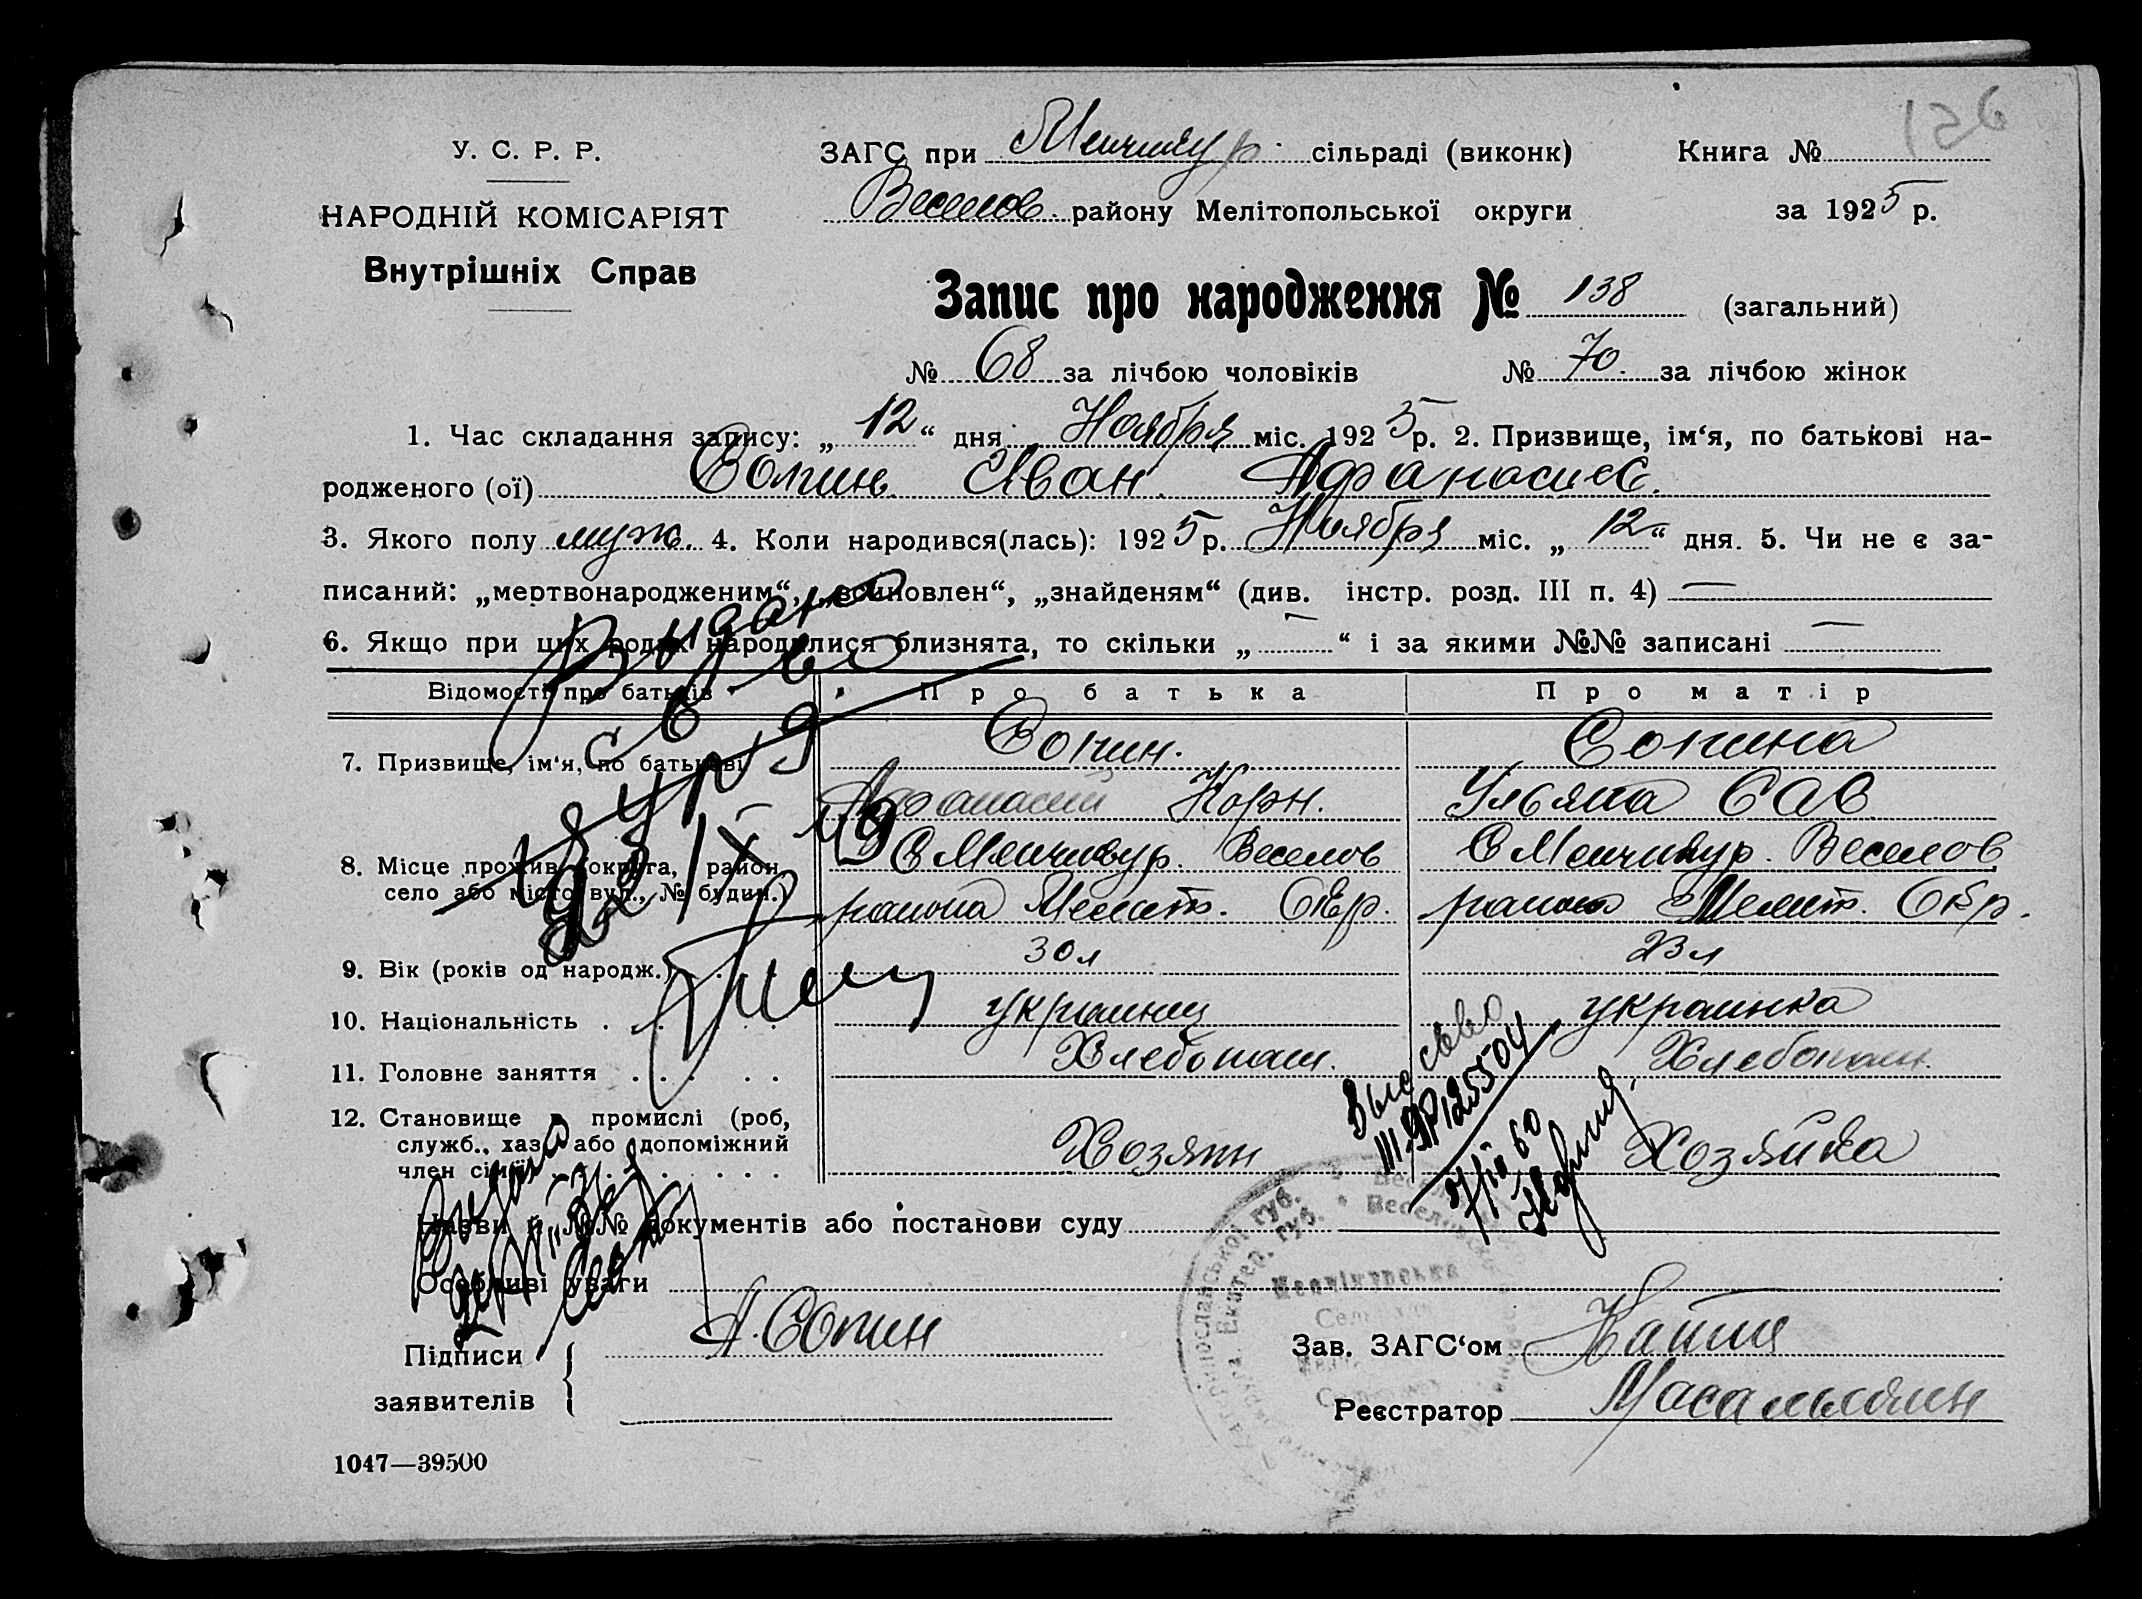 126
У. С. Р. Р.
НАРОДНІЙ КОМІСАРІЯТ
Внутрішніх Справ
ЗАГС при Менчикур. сільраді (виконк) Книга №
Веселов. району Мелітопольської округи за 1925 р.
Запис про народження № 138 (загальний)
№ 68 за лічбою чоловіків № 70. за лічбою жінок
1. Час складання запису: „12“ дня Ноября міс. 1925 р. 2. Призвище, ім‘я, по батькові на-
родженого (ої) Сопин Иван Афанасиев.
3. Якого полу муж. 4. Коли народився(лась): 1925 р. Ноября міс. „12“ дня. 5. Чи не є за-
писаний: „мертвонародженим“, „всиновлен“, „знайденям“ (див. інстр. розд. III п. 4) —
6. Якщо при цих родах народилися близнята, то скільки „—“ і за якими №№ записані —
Відомості про батьків Про батька Про матір
7. Призвище, ім‘я, по батькові Сопин. Сопина
Афанасий Корн. Ульяна Сав
8. Місце прожив. округа, район, С Менчикур. Веселов С Менчикур. Веселов
село або місто, вул., № будин.) района Мелит. Окр. района Мелит. Окр.
9. Вік (років од народж.) 30 л 23 л
10. Національність украинец украинка
11. Головне заняття Хлебопаш. Хлебопаш.
12. Становище в промислі (роб,
служб., хаз. або допоміжний
член сімї) Хозяин Хозяйка
Выдано
св во
Назви й №№ документів або постанови суду
Особливі уваги
Підписи
заявителів
А. Сопин
Зав. ЗАГС‘ом
Реєстратор
1047—39500